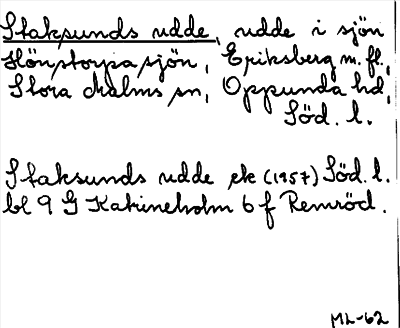 Staksunds udde, udde i sjön
Hönstorpasjön, Eriksberg m.fl.,
Stora Malms sn, Oppunda hd,
Söd. l.
Staksunds udde ek (1957) Söd. l.
bl 9 G Katrineholm 6 f Remröd.
ML-62